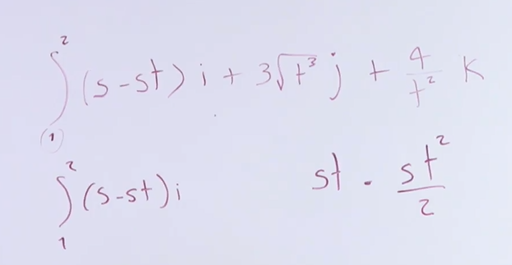 ∫₁² (5-5t) i + 3√t³ j + 4/t² k
∫₁² (5-5t) i    5t - 5t²/2